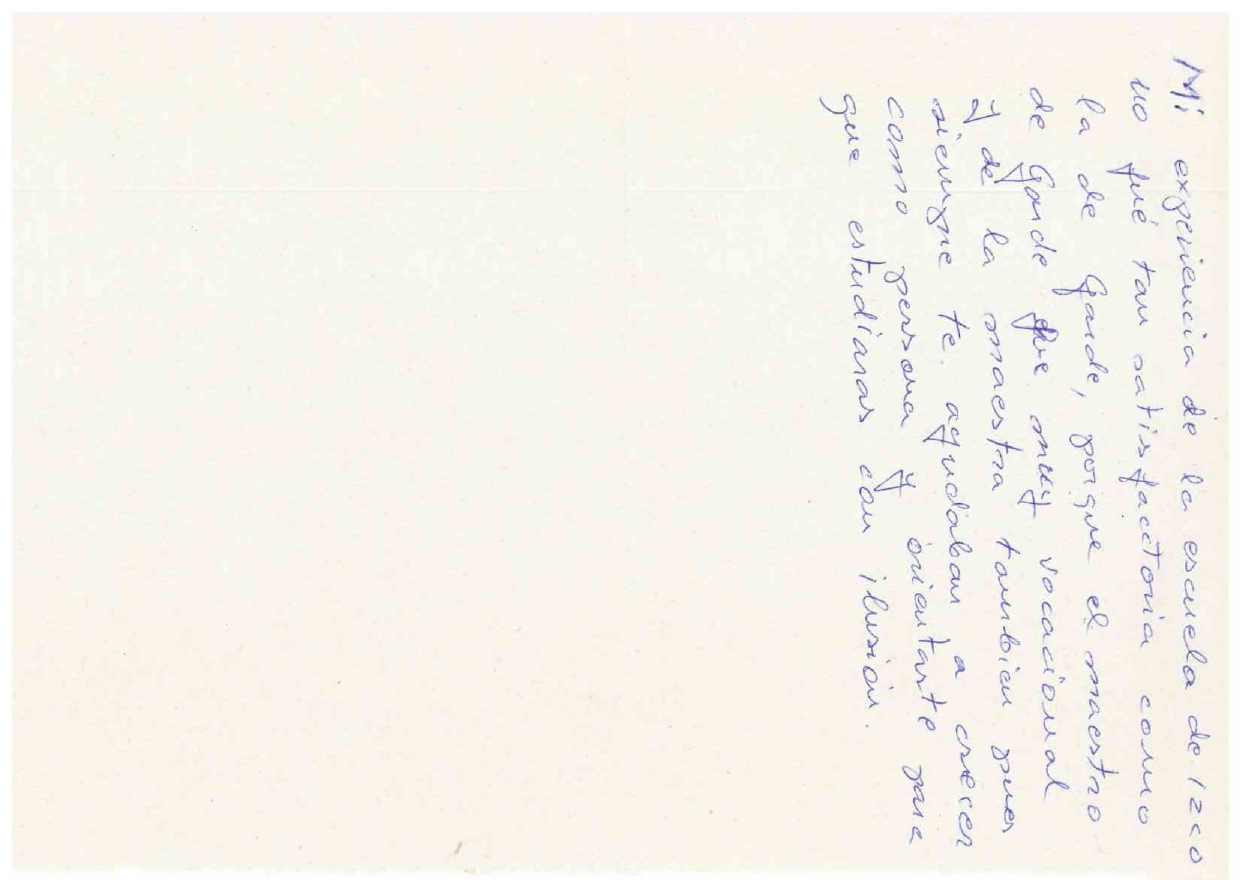 Mi experiencia de la escuela de Izco
no fué tan satisfacctoria como
la de Garde, porque el maestro
de Garde fue muy vocacional
y de la maestra tambien pues
siempre te ayudaban a crecer
como persona y orientarte para
que estudiaras con ilusión.